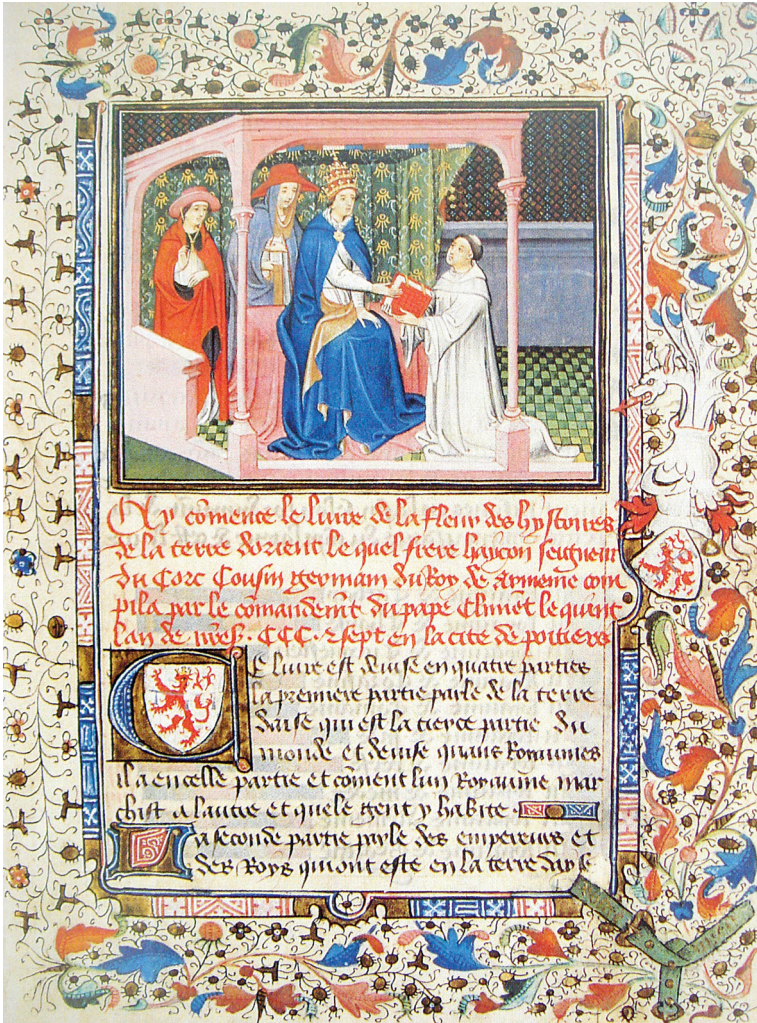 Cy cõmence le liure de la fleur des hystoires
de la terre dorient le quel frere haycon seigneur
du Corc Cousin germain du Roy de armenie com
pila par le cõmandemt du pape Climẽt le quint
lan de · CCC · sept en la cite de poitiers
Ce liure est deuise en quatre parties
la premiere partie parle de la terre
daise qui est la tierce partie du
monde et deuise quans Royaumes
il a en celle partie et cõment lun Royaume mar
chist a lautre et quele gent y habite
La seconde partie parle des empereurs et
des Roys qui ont este en la terre dayse